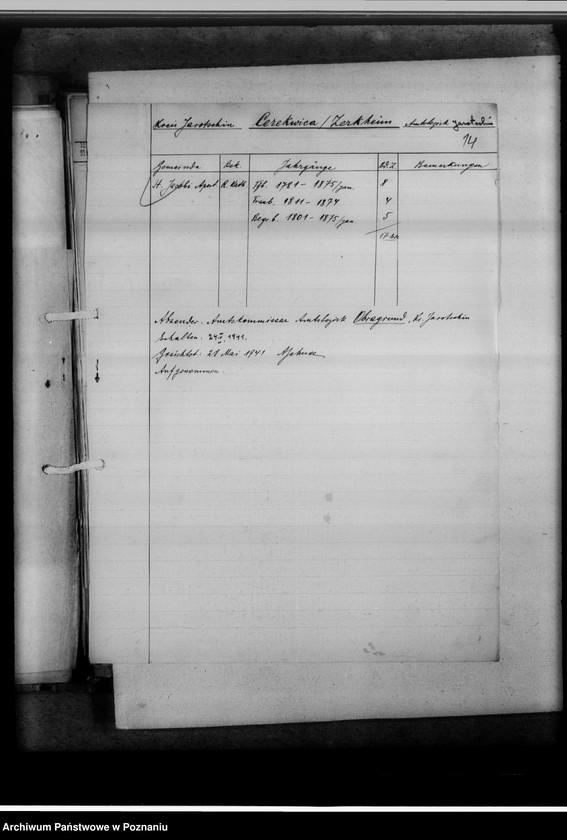 Kreis Jarotschin Cerekwica / Zerkheim Amtsbezirk Jarotschin
14
Gemeinde Bek. Jahrgänge Bd. Z. Bemerkungen
St. Jacobi Apost. R. Kath. Tfb. 1781 - 1875/gem. 8
Traub. 1811 - 1874 4
Begr.b. 1801 - 1875/gem 5
17
Absender: Amtskommissar Amtsbezirk Obragrund, Kr. Jarotschin
Erhalten: 24. V. 1941.
Gesichtet: 28 Mai 1941
Aufgenommen:
Archiwum Państwowe w Poznaniu